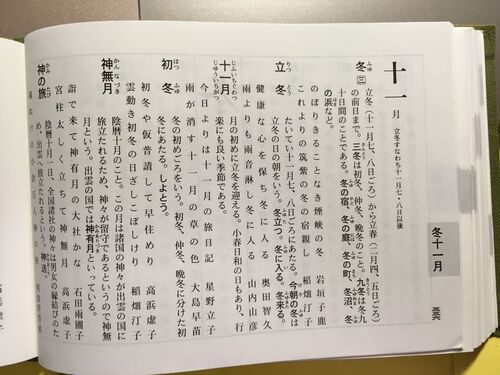 冬 十一月
十一月 立冬すなわち十一月七・八日以後
冬 三 立冬（十一月七、八日ごろ）から立春（二月四、五日ごろ）
の前日まで。三冬は初冬、仲冬、晩冬のこと。九冬は冬九
十日間のことである。冬の宿、冬の庭、冬の町、冬沼、冬
の浜など。
のぼりきることなき煙峡の冬 岩垣子鹿
これよりの筑紫の冬の宿親し 稲畑汀子
立冬 たいてい十一月七、八日ごろにあたる。今朝の冬は
立冬の日の朝をいう。冬立つ。冬に入る。冬来る。
健康な心を保ち冬に入る 奥田智久
雨よりも雨音淋し冬に入る 山内山彦
十一月 月の初めに立冬を迎える。小春日和の日もあり、行
楽にも良い季節である。
今日よりは十一月の旅日記 星野立子
雨が消す十一月の草の色 大島早苗
初冬 冬の初めごろをいう。初冬、仲冬、晩冬に分けた初
冬にあたる。しよとう。
初冬や仮普請して早住めり 高浜虚子
雲動き初冬の日ざしこぼしけり 稲畑汀子
神無月 陰暦十月のこと。この月は諸国の神々が出雲の国に
旅立たれるため、神々が留守であるというので神無
月という。出雲の国では神有月といっている。
宮柱太しく立ちて神無月 高浜虚子
詣で来て神有月の大社かな 石田雨圃子
神の旅 陰暦十月一日、全国の神々は男女の縁結びのた
め、出雲へ旅立たれるという。神送。